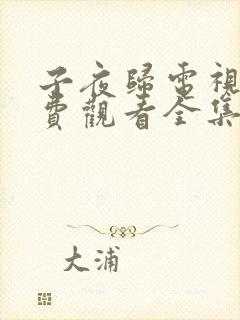 子夜歸電視
費觀看全集
大浦